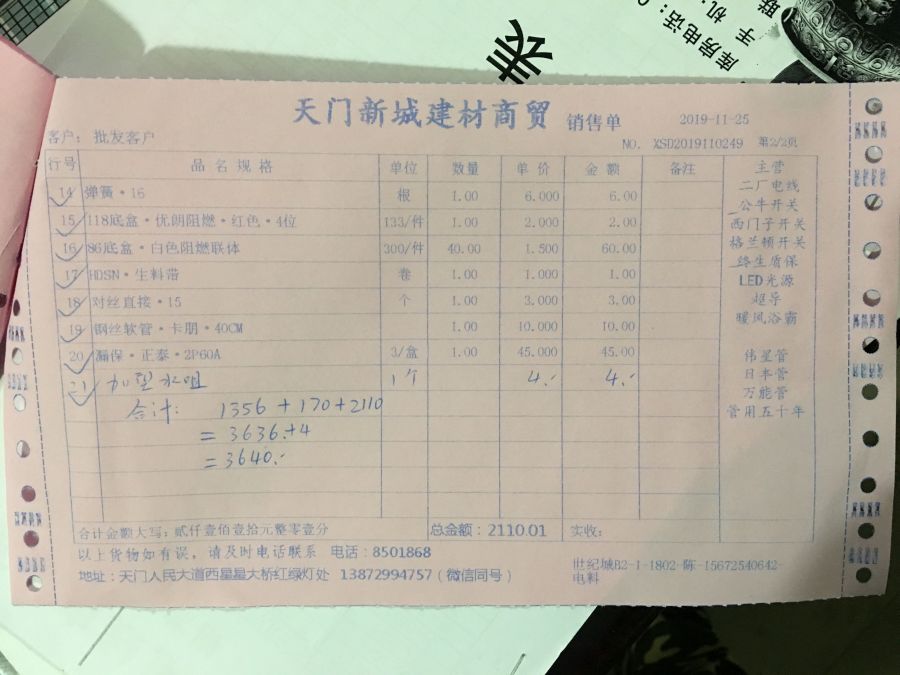 库房电话:
手 机:
联
天门新城建材商贸 销售单 2019-11-25
客户: 批发客户 NO. XSD2019110249 第2/2页
行号 品名规格 单位 数量 单价 金额 备注 主营
14 弹簧·16 根 1.00 6.000 6.00
15 118底盒·优朗阻燃·红色·4位 133/件 1.00 2.000 2.00
16 86底盒·白色阻燃联体 300/件 40.00 1.500 60.00
17 HDSN·生料带 卷 1.00 1.000 1.00
18 对丝直接·15 个 1.00 3.000 3.00
19 钢丝软管·卡朋·40CM 1.00 10.000 10.00
20 漏保·正泰·2P60A 3/盒 1.00 45.000 45.00
21 加型水咀 1个 4.- 4.-
合计: 1356+170+2110
=3636.+4
=3640.-
二厂电线
公牛开关
西门子开关
格兰顿开关
终生质保
LED光源
超导
暖风浴霸
伟星管
日丰管
万能管
管用五十年
合计金额大写:贰仟壹佰壹拾元整零壹分 总金额:2110.01 实收:
以上货物如有误,请及时电话联系 电话:8501868
地址:天门人民大道西星星大桥红绿灯处 13872994757(微信同号)
世纪城B2-1-1802-陈-15672540642-
电料